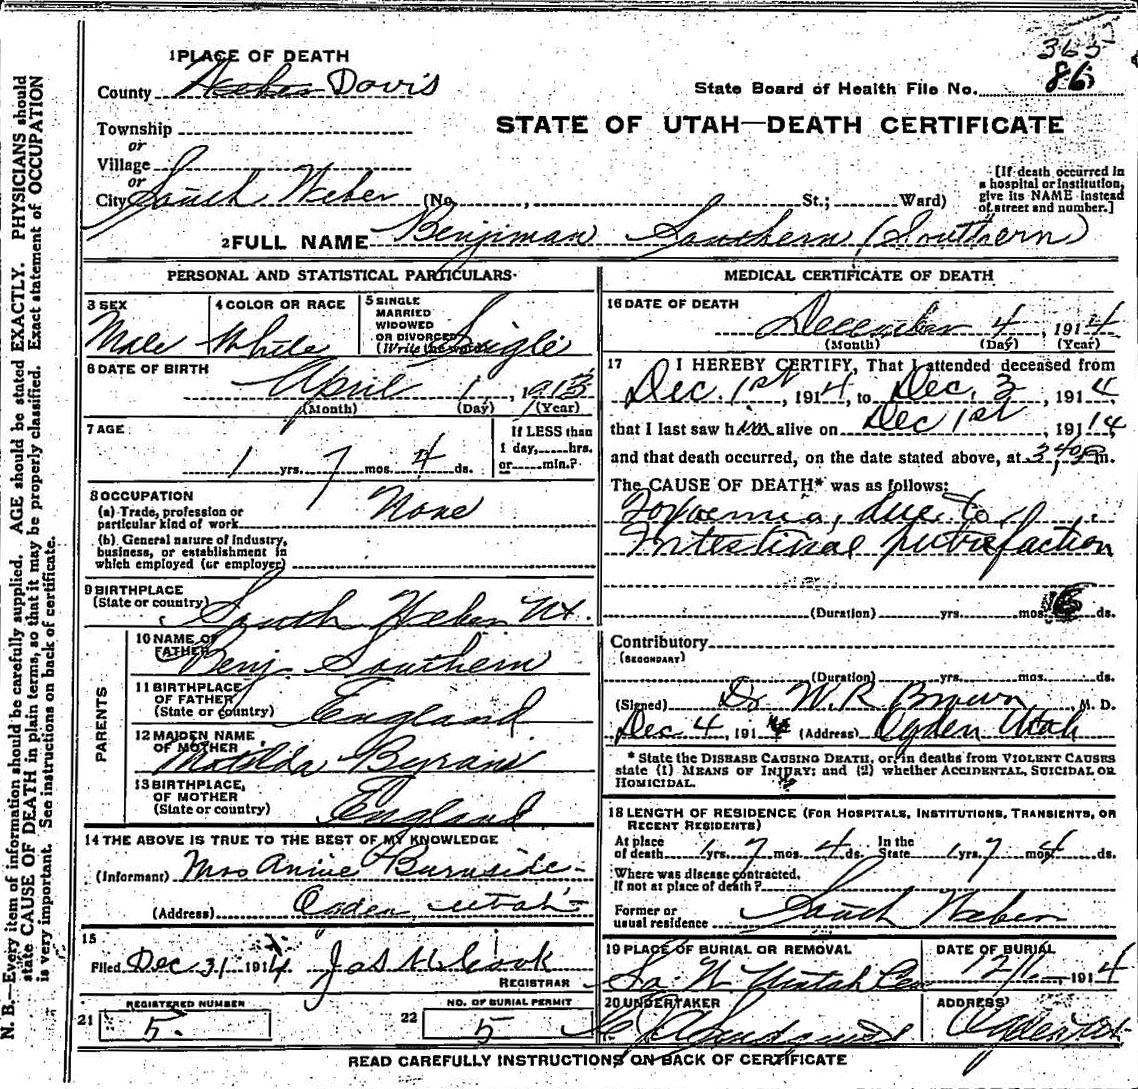 365
86
1 PLACE OF DEATH
County Weber Davis
State Board of Health File No.
STATE OF UTAH—DEATH CERTIFICATE
Township
or
Village
or
City South Weber (No. , St.; Ward)
[If death occurred in
a hospital or institution,
give its NAME instead
of street and number.]
2 FULL NAME Benjiman Southern (Southern)
PERSONAL AND STATISTICAL PARTICULARS
3 SEX
Male
4 COLOR OR RACE
White
5 SINGLE
MARRIED
WIDOWED
OR DIVORCED
(Write the word)
Single
6 DATE OF BIRTH
April 1, 1913
(Month) (Day) (Year)
7 AGE
1 yrs. 7 mos. 4 ds.
If LESS than
1 day, hrs.
or min.?
8 OCCUPATION
(a) Trade, profession or
particular kind of work None
(b) General nature of industry,
business, or establishment in
which employed (or employer)
9 BIRTHPLACE
(State or country) South Weber Ut.
PARENTS
10 NAME OF
FATHER Benj. Southern
11 BIRTHPLACE
OF FATHER
(State or country) England
12 MAIDEN NAME
OF MOTHER Matilda
13 BIRTHPLACE,
OF MOTHER
(State or country) England
14 THE ABOVE IS TRUE TO THE BEST OF MY KNOWLEDGE
(Informant) Mrs Annie Burnside
(Address) Ogden, Utah
15
Filed Dec 31 1914 Jas
REGISTRAR
21 REGISTERED NUMBER
5.
22 NO. OF BURIAL PERMIT
5
MEDICAL CERTIFICATE OF DEATH
16 DATE OF DEATH
December 4, 1914
(Month) (Day) (Year)
17 I HEREBY CERTIFY, That I attended deceased from
Dec. 1st, 1914, to Dec. 3, 1914
that I last saw him alive on Dec 1st, 1914
and that death occurred, on the date stated above, at m.
The CAUSE OF DEATH* was as follows:
Toxoemia, due to
Intestinal putrefaction
(Duration) yrs. mos. ds.
Contributory
(SECONDARY)
(Duration) yrs. mos. ds.
(Signed) Dr W. R Brown, M. D.
Dec 4, 1914 (Address) Ogden Utah
* State the DISEASE CAUSING DEATH, or, in deaths from VIOLENT CAUSES
state (1) MEANS OF INJURY; and (2) whether ACCIDENTAL, SUICIDAL OR
HOMICIDAL.
18 LENGTH OF RESIDENCE (FOR HOSPITALS, INSTITUTIONS, TRANSIENTS, OR
RECENT RESIDENTS)
At place
of death 1 yrs. 7 mos. 4 ds.
In the
State 1 yrs. 7 mos. 4 ds.
Where was disease contracted,
if not at place of death?
Former or
usual residence South Weber
19 PLACE OF BURIAL OR REMOVAL
So. W. Utah Cem
DATE OF BURIAL
1914
20 UNDERTAKER
ADDRESS
Ogden Ut
READ CAREFULLY INSTRUCTIONS ON BACK OF CERTIFICATE
N. B.—Every item of information should be carefully supplied. AGE should be stated EXACTLY. PHYSICIANS should
state CAUSE OF DEATH in plain terms, so that it may be properly classified. Exact statement of OCCUPATION
is very important. See instructions on back of certificate.